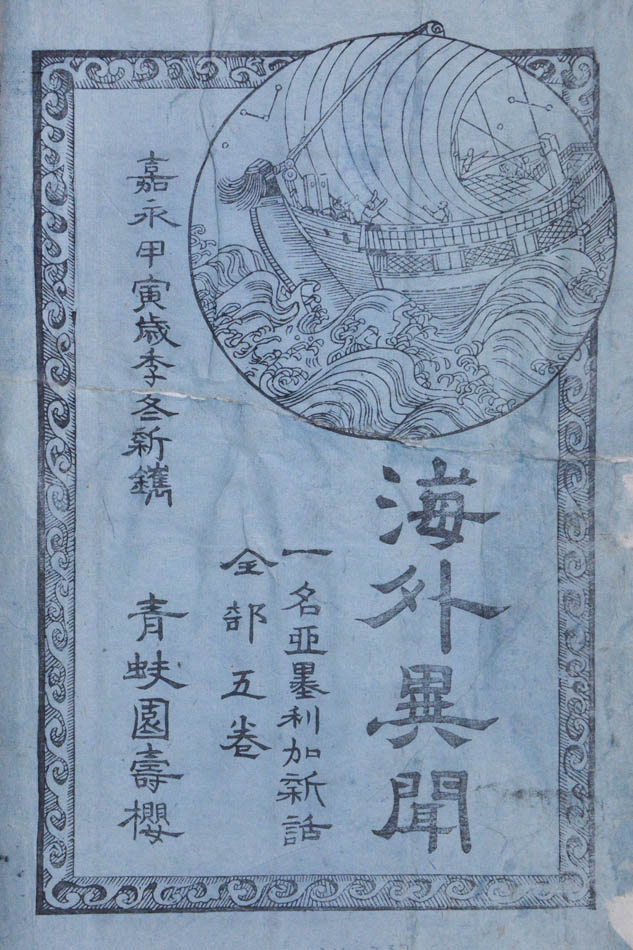 海外異聞
一名亜墨利加新話
全部五巻
嘉永甲寅歳季冬新鐫
青蚨園壽櫻